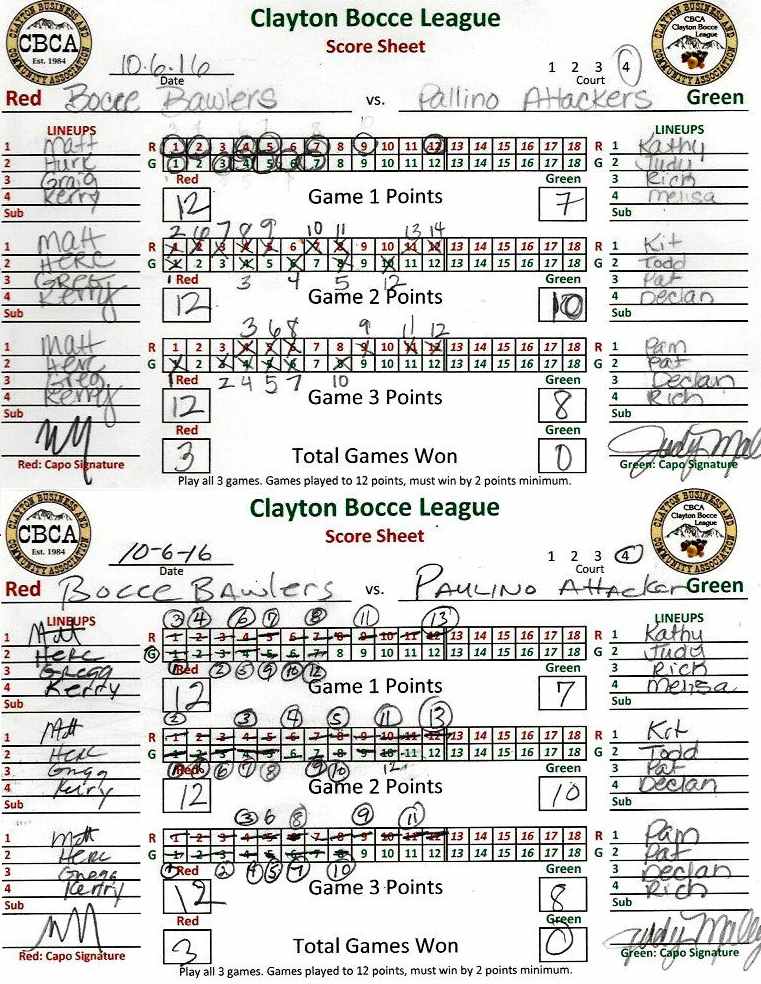 Clayton Bocce League
Score Sheet
CLAYTON BUSINESS AND COMMUNITY ASSOCIATION
CBCA
Est. 1984
CBCA
Clayton Bocce
League
10.6.16
Date
1 2 3 4
Court
Red Bocce Bawlers vs. Pallino Attackers Green
LINEUPS LINEUPS
1 Matt R 1 2 3 4 5 6 7 8 9 10 11 12 13 14 15 16 17 18 R 1 Kathy
2 Hurk G 1 2 3 4 5 6 7 8 9 10 11 12 13 14 15 16 17 18 G 2 Judy
3 Graig Red Green 3 Rich
4 Kerry 12 Game 1 Points 7 4 Melisa
Sub Sub
2 6 7 8 9 10 11 13 14
1 Matt R 1 2 3 4 5 6 7 8 9 10 11 12 13 14 15 16 17 18 R 1 Kit
2 Herc G 1 2 3 4 5 6 7 8 9 10 11 12 13 14 15 16 17 18 G 2 Todd
3 Greg 1 Red 3 4 5 12 Green 3 Pat
4 Kerry 12 Game 2 Points 10 4 Declan
Sub Sub
3 6 8 9 11 12
1 Matt R 1 2 3 4 5 6 7 8 9 10 11 12 13 14 15 16 17 18 R 1 Pam
2 Herc G 1 2 3 4 5 6 7 8 9 10 11 12 13 14 15 16 17 18 G 2 Pat
3 Greg 1 Red 2 4 5 7 10 Green 3 Declan
4 Kerry 12 Game 3 Points 8 4 Rich
Sub Sub
Red Green
3 Total Games Won 0 Judy
Red: Capo Signature Green: Capo Signature
Play all 3 games. Games played to 12 points, must win by 2 points minimum.
Clayton Bocce League
Score Sheet
CLAYTON BUSINESS AND COMMUNITY ASSOCIATION
CBCA
Est. 1984
CBCA
Clayton Bocce
League
10-6-16
Date
1 2 3 4
Court
Red Bocce Bawlers vs. Paulino Attacker Green
LINEUPS 3 4 6 7 8 11 13 LINEUPS
1 Matt R 1 2 3 4 5 6 7 8 9 10 11 12 13 14 15 16 17 18 R 1 Kathy
2 Herc G 1 2 3 4 5 6 7 8 9 10 11 12 13 14 15 16 17 18 G 2 Judy
3 Gregg 1 Red 2 5 9 10 12 Green 3 Rich
4 Kerry 12 Game 1 Points 7 4 Melisa
Sub Sub
2 3 4 5 11 13
1 Matt R 1 2 3 4 5 6 7 8 9 10 11 12 13 14 15 16 17 18 R 1 Kit
2 Herc G 1 2 3 4 5 6 7 8 9 10 11 12 13 14 15 16 17 18 G 2 Todd
3 Gregg Red 6 7 8 9 10 12 Green 3 Pat
4 Kerry 12 Game 2 Points 10 4 Declan
Sub Sub
3 6 8 9 11
1 Matt R 1 2 3 4 5 6 7 8 9 10 11 12 13 14 15 16 17 18 R 1 Pam
2 Herc G 1 2 3 4 5 6 7 8 9 10 11 12 13 14 15 16 17 18 G 2 Pat
3 Gregg 1 Red 2 4 5 7 10 Green 3 Declan
4 Kerry 12 Game 3 Points 8 4 Rich
Sub Sub
Red Green
3 Total Games Won 0 Judy Molloy
Red: Capo Signature Green: Capo Signature
Play all 3 games. Games played to 12 points, must win by 2 points minimum.